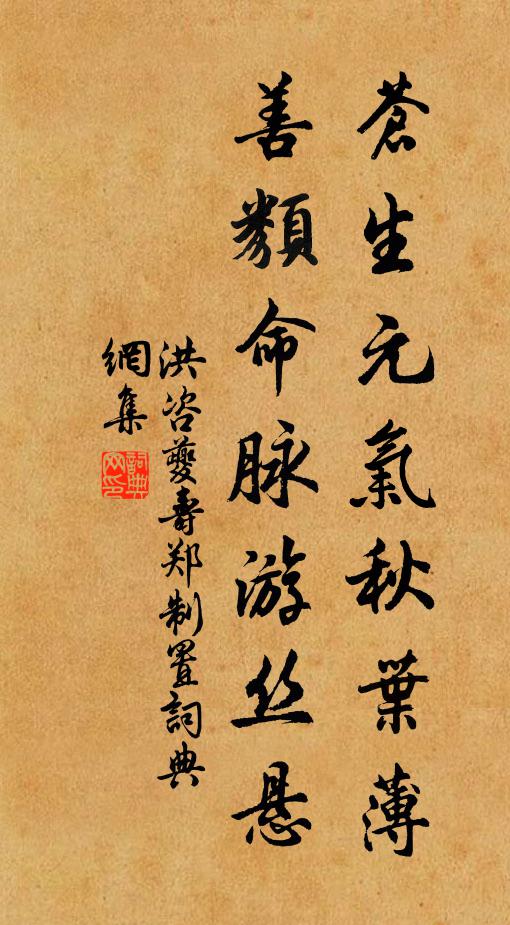 蒼生元氣秋葉薄
善類命脉游丝悬
洪咨夔壽郑制置詞典
網集
詞典網印